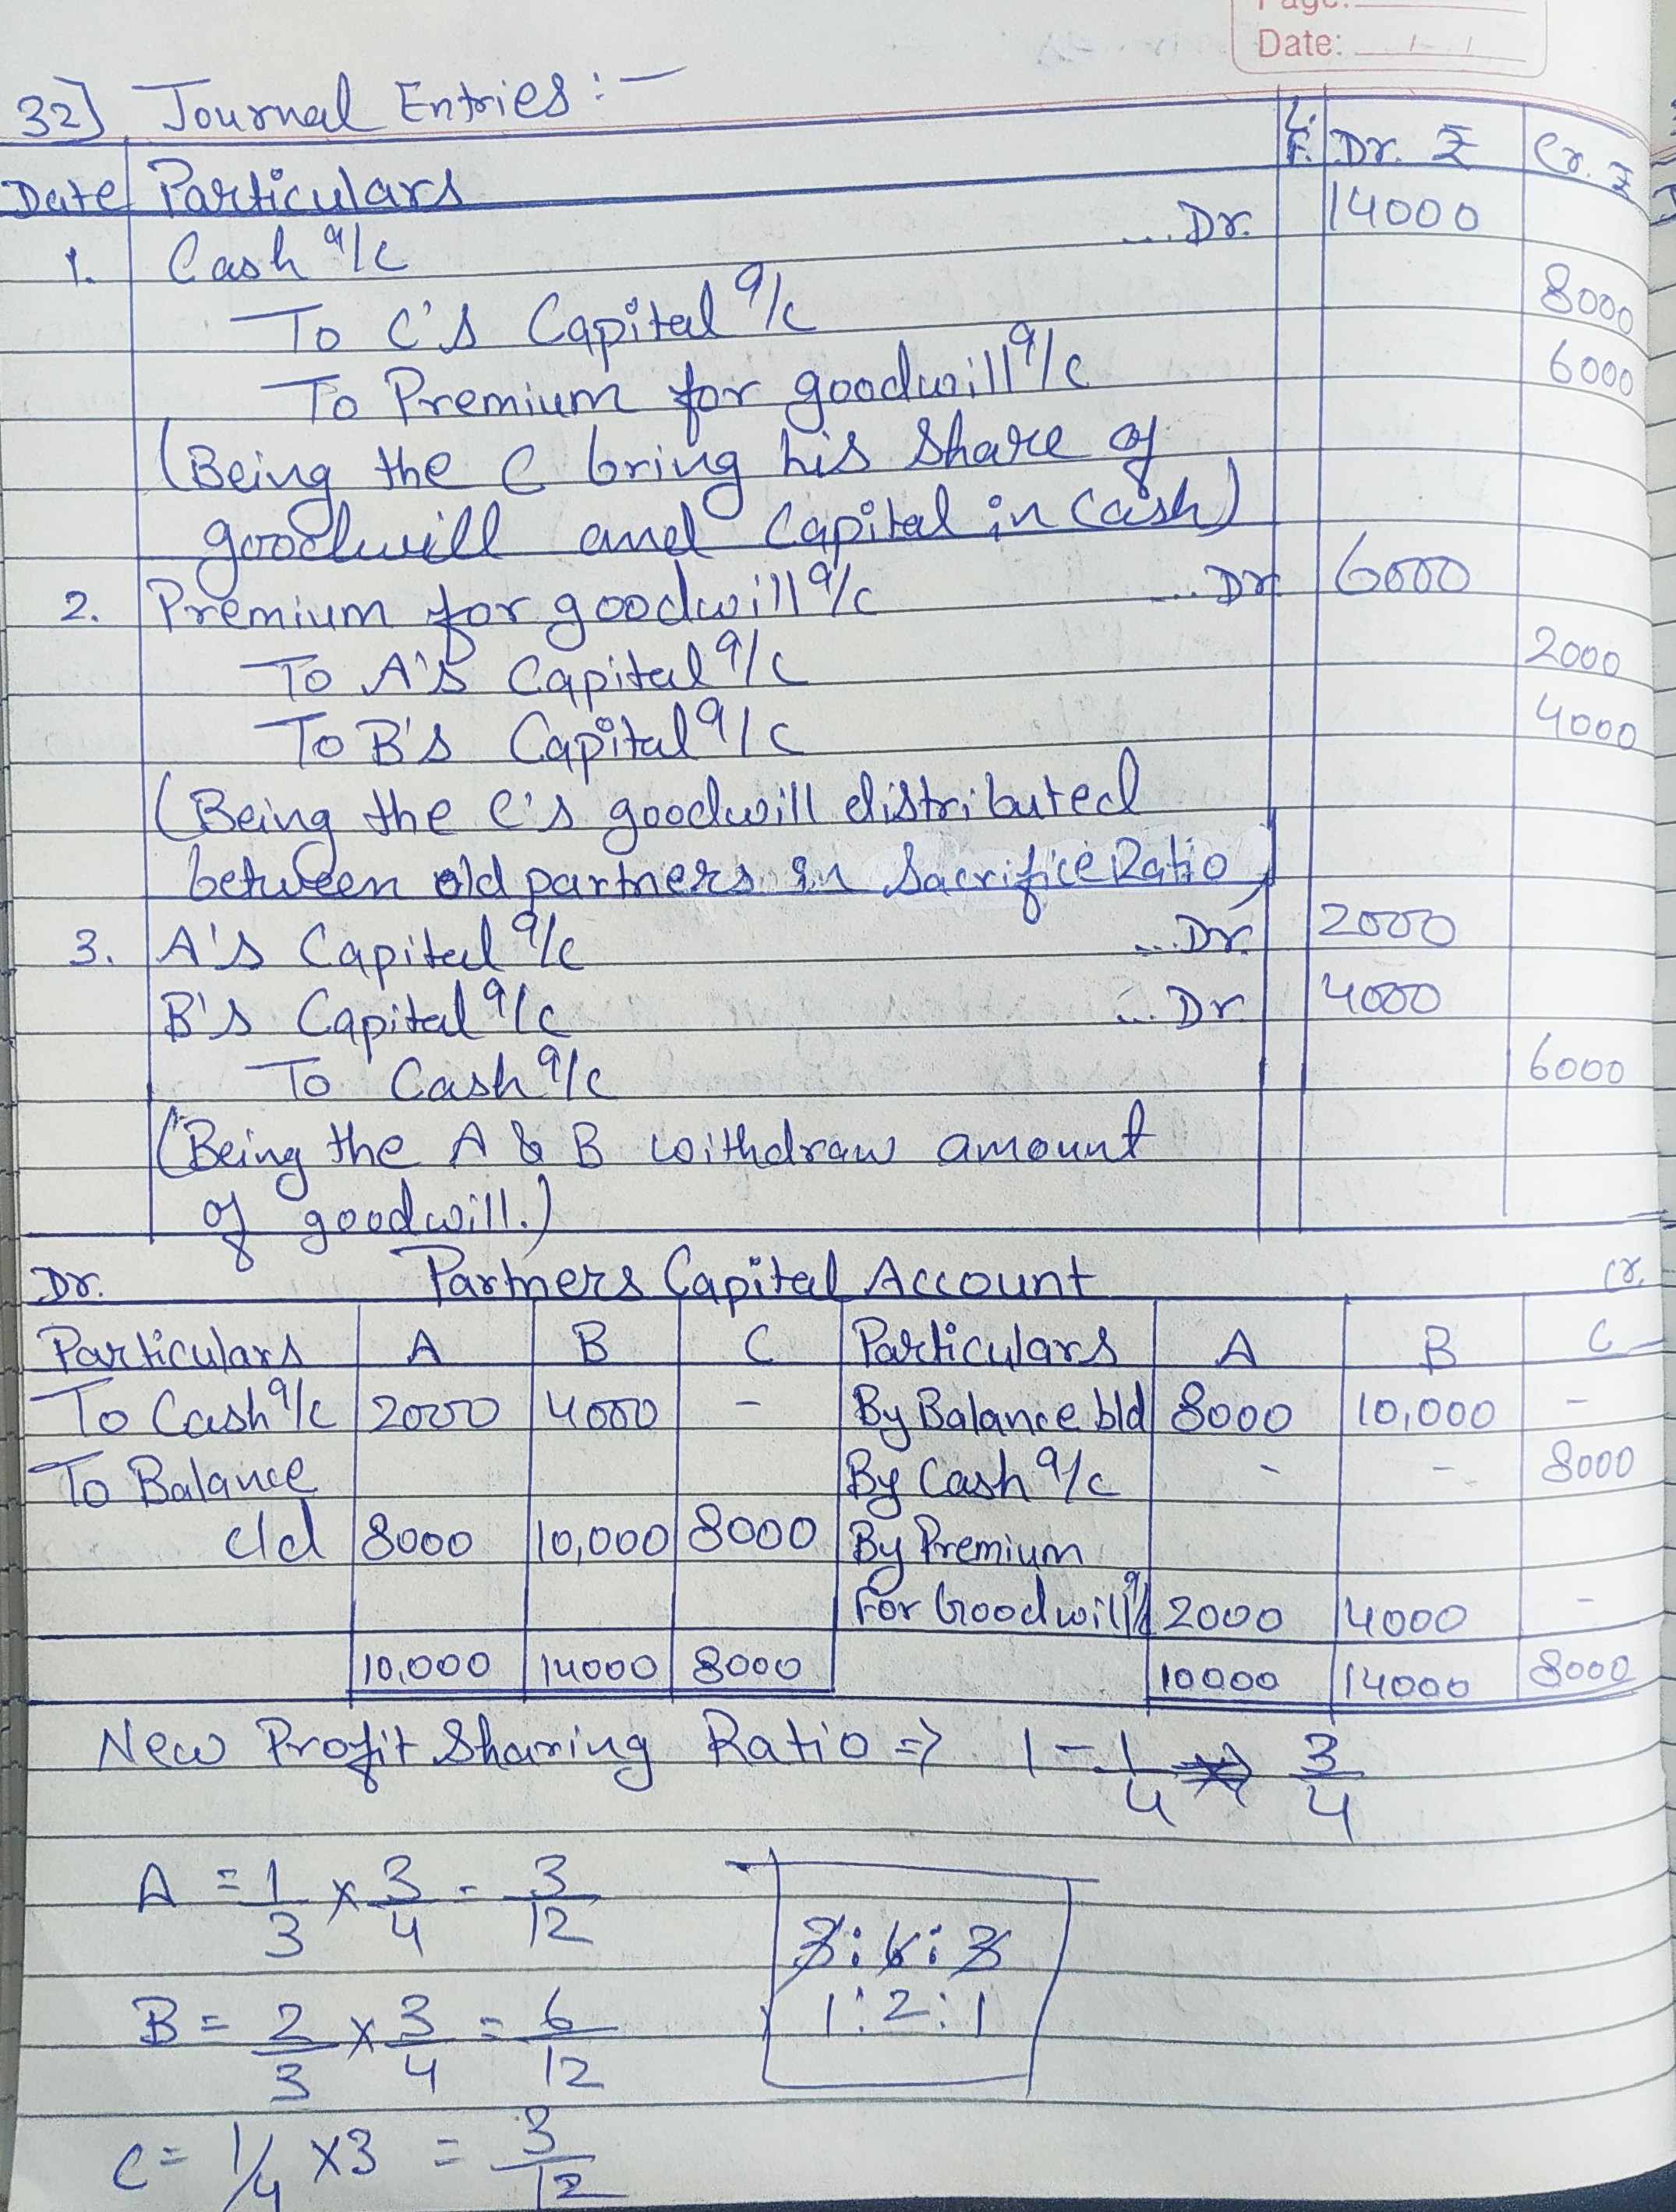 Page:
Date:
32] Journal Entries :-
Date Particulars L.F. Dr. ₹ Cr. ₹
1. Cash a/c ...Dr. 14000
To C's Capital a/c 8000
To Premium for goodwill a/c 6000
(Being the C bring his share of
goodwill and Capital in Cash)
2. Premium for goodwill a/c ...Dr. 6000
To A's Capital a/c 2000
To B's Capital a/c 4000
(Being the C's goodwill distributed
between old partners in Sacrifice Ratio)
3. A's Capital a/c ...Dr. 2000
B's Capital a/c ...Dr. 4000
To Cash a/c 6000
(Being the A & B withdraw amount
of goodwill.)
Dr. Partners Capital Account Cr.
Particulars A B C Particulars A B C
To Cash a/c 2000 4000 - By Balance b/d 8000 10,000 -
To Balance By Cash a/c - - 8000
c/d 8000 10,000 8000 By Premium
For Goodwill a/c 2000 4000 -
10,000 14000 8000 10000 14000 8000
New Profit Sharing Ratio => 1 - 1/4 => 3/4
A = 1/3 × 3/4 = 3/12
3:6:3
B = 2/3 × 3/4 = 6/12
1:2:1
C = 1/4 × 3 = 3/12